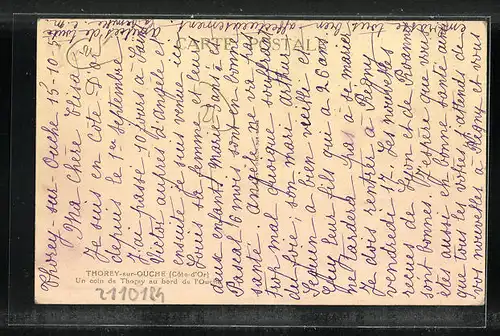 amitiés de toute
la famille.
embrasse tous bien
affectueusement.
CARTE POSTALE
Thorey-sur-Ouche 15-10-5
Ma chère Elisa
Je suis en Côte D'or
depuis le 1er septembre
J'ai passé 10 jours à
Victor autres d'angèle et
ensuite je suis venue ici
Louis sa femme et leurs
deux enfants Marie
Pascal 6 mois sont en bonne
santé. Angèle ne va pas
trop mal quoique souffrant
son mari arthur
de foie, a bien veilli et
Septien
Guy leur fils qui a 26 ans
ne tardera pas à se marier
Je dois rentrer à Pligny
vendredi 17. Les nouvelles
reçues de Lyon et de
sont bonnes. J'espère que vous
êtes aussi en bonne santé ainsi
que tous les votres j'attends de
vos nouvelles à Pligny et vous
THOREY-sur-OUCHE (Côte-d'Or)
Un coin de Thorey au bord de l'Ouche
2110184